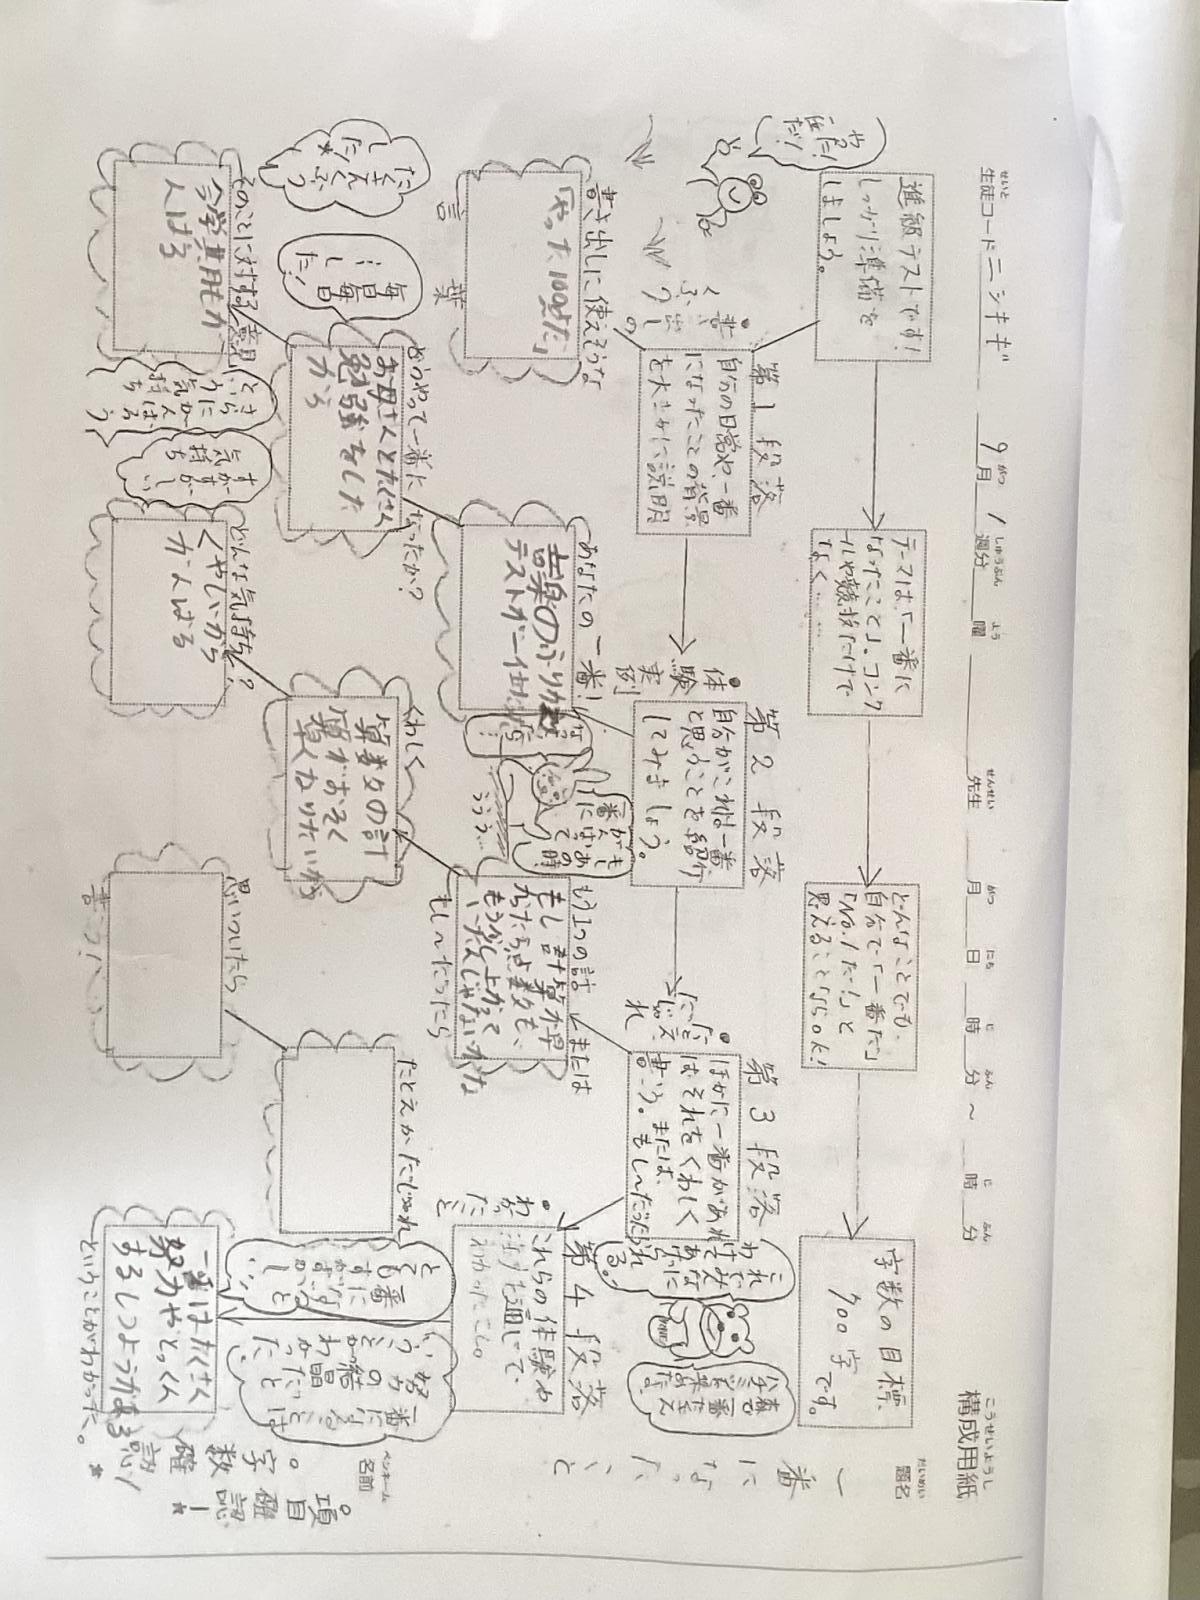 構成用紙
こうせいようし
生徒コード ニシキギ 9月 1週分 曜 先生 月 日 時 分 ~ 時 分
題名
だいめい
一番になったこと
名前
ペンネーム
進級テストです!
しっかり準備を
しましょう。
テーマは、「一番に
なったこと」。コンク
ールや競技だけで
なく……
どんなことでも、
自分で「一番だ」
「No.1だ!」と
思えることならOK!
字数の目標
700字です。
や
進級!
だ!
第1段落
自分の日常や、一番
になったことの背景
を大まかに説明
書き出しの
くふう
書き出しに使えそうな
言葉
「やった100点だ」
第2段落
自分がこれは一番
と思うことを紹介
してみましょう。
体験
実例
あなたの一番!
音楽のふりかえ
どうやって一番に
なったか?
お母さんとたくさん
勉強をした
から
たくさん
した!
毎日毎日
…した!
そのことに対する意見
今学期もが
んばる
さらに
がんばろう
という気
持ち
すがすがしい
気持ち
どんな気持ち?
くやしいから
がんばる
くわしく
算数の計
算がおそく
早くなりたいから
ううう…
第3段落
ほかに一番があれ
ばそれをくわしく
書こう。または、
もし~だったら
もう1つの話
または
もし~だったら
もし計算が早
かったら点数も、
もう少し上がって
いたんじゃないかな
たとえ
だじゃれ
たとえかだじゃれ
思いついたら
書こう!
第4段落
これらの体験や
わかったこと
一番になると
とても
すがすがしい
一番になることは
努力
の結晶
だと
いうことがわかった
一番はたくさん
努力やとっくん
するひつようがある
ということがわかった。
。字数確認!*
。項目確認!*